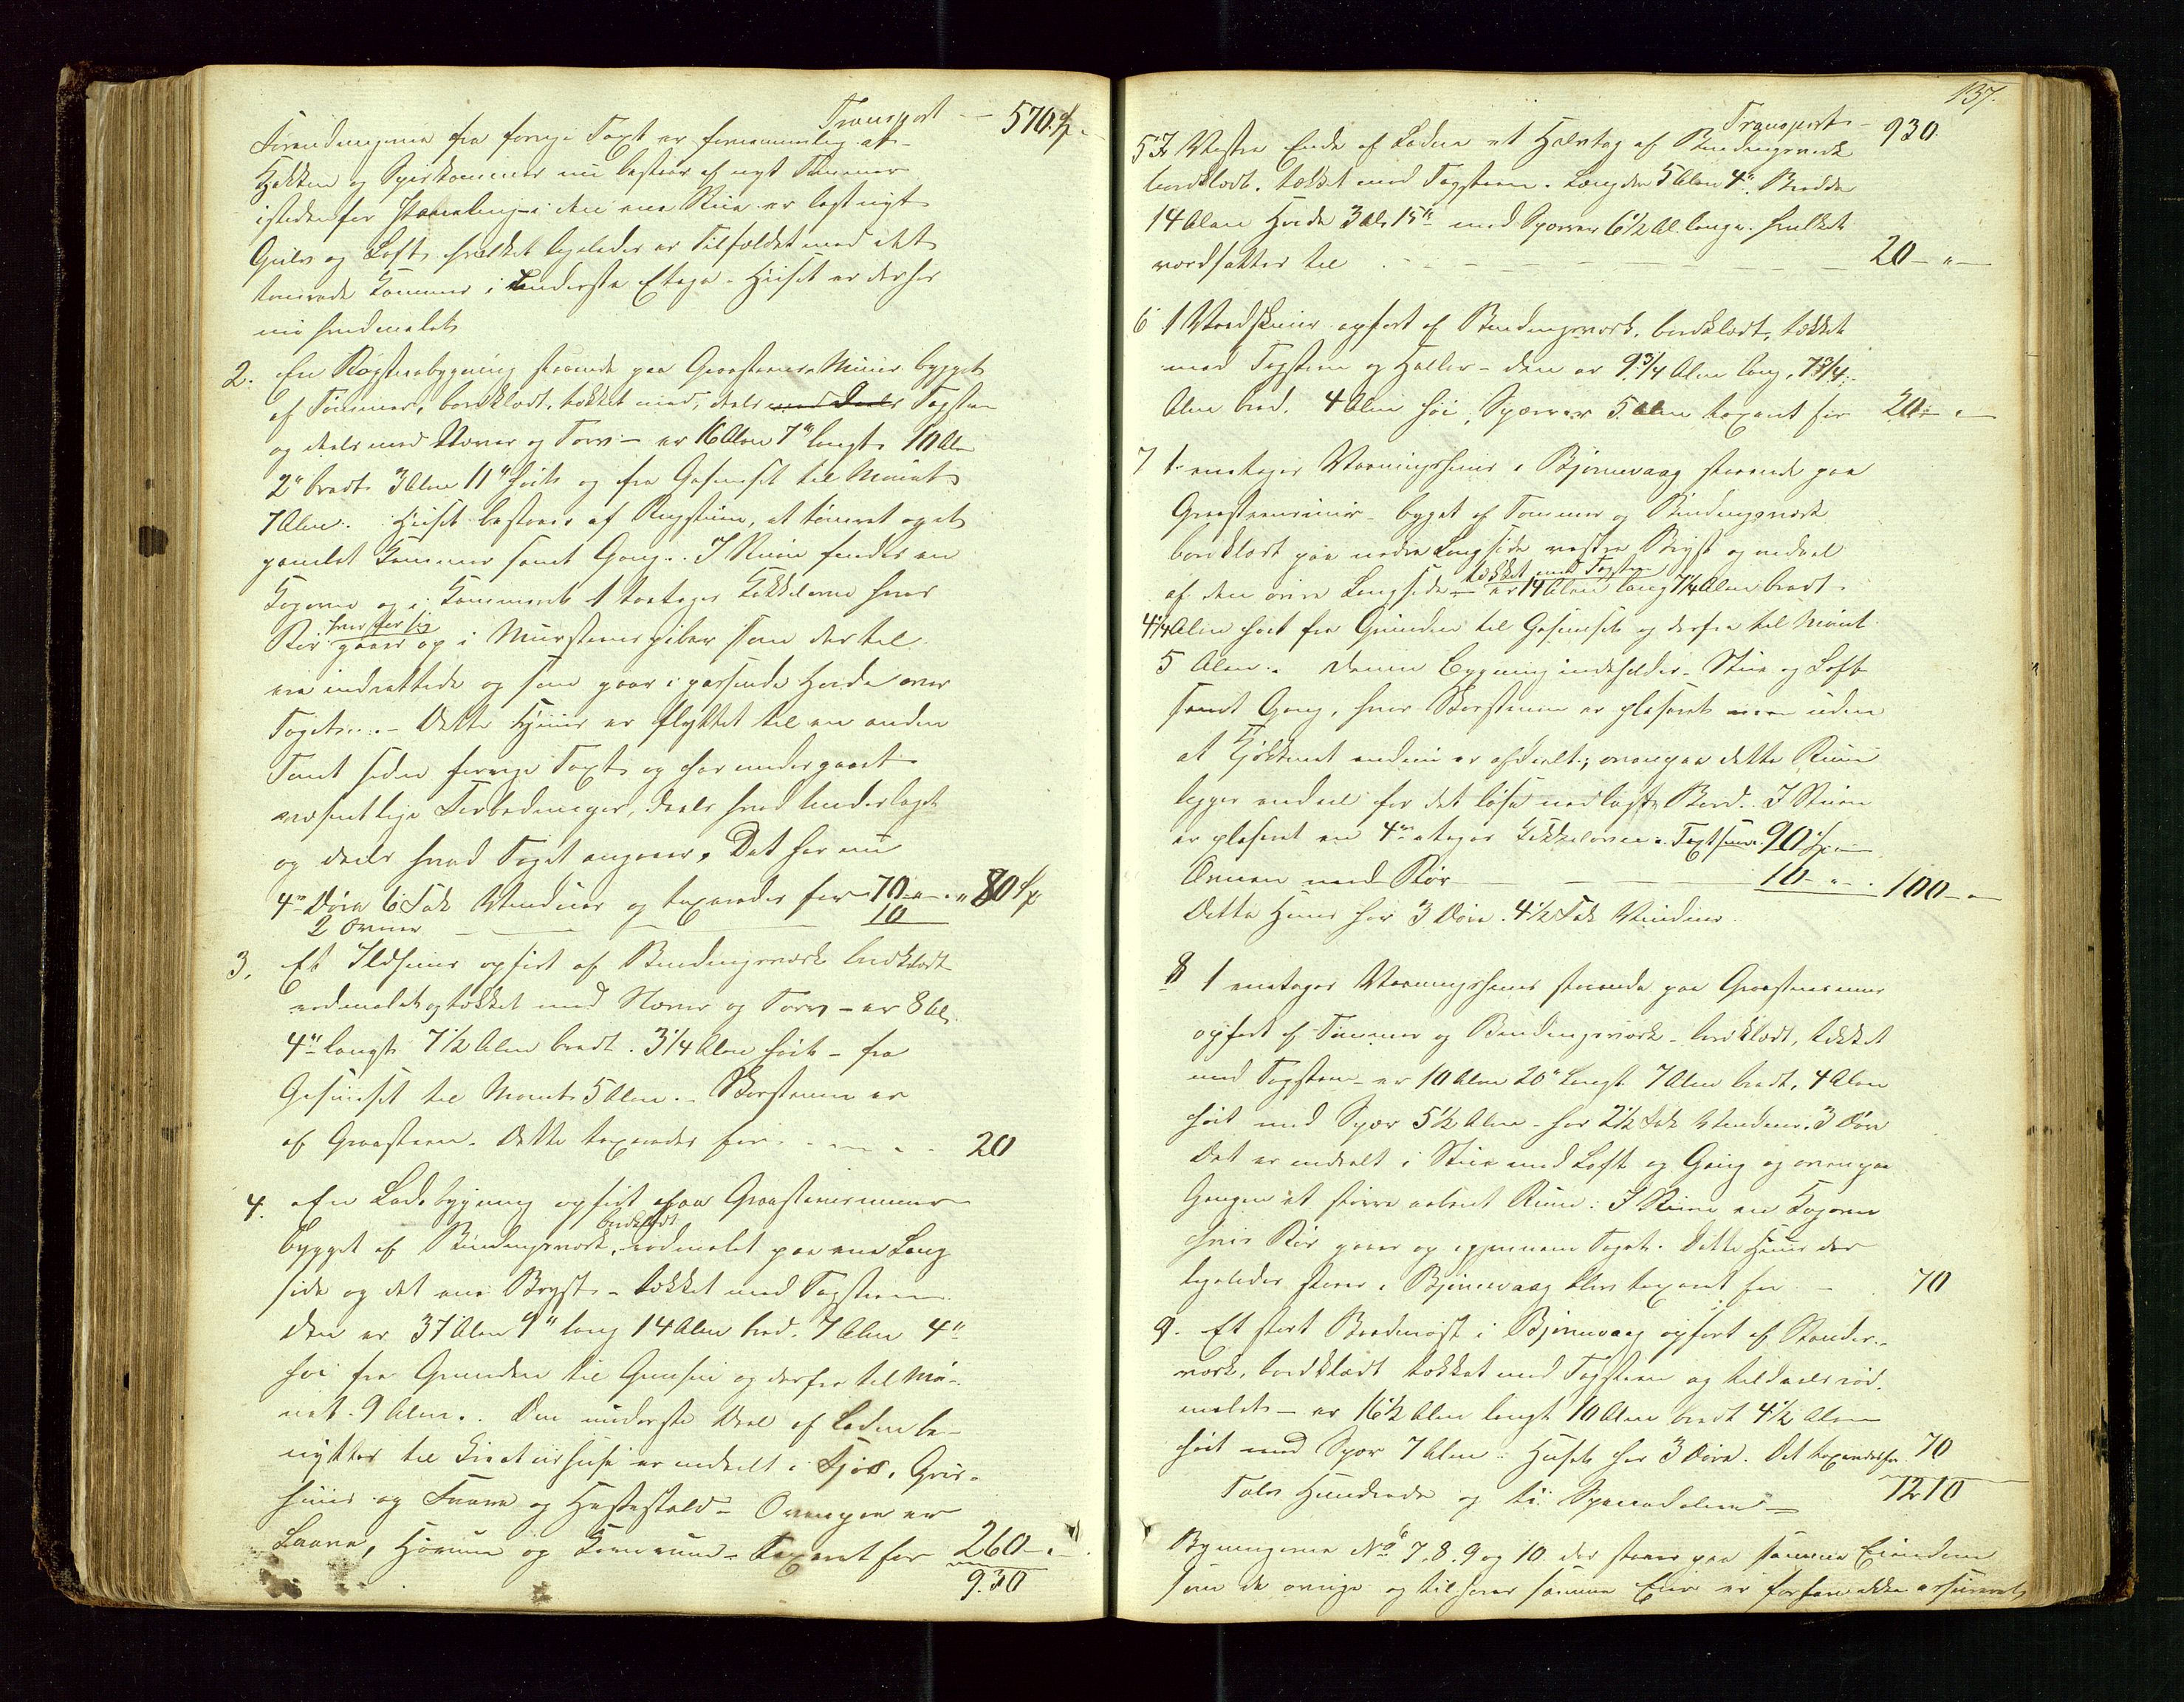 Transport — 570 Sp
Forandringerne fra forrige Taxt er fornemmelig at
Kjøkken og Spiskammer nu bestaar af nyt Tømmer
istedenfor Paneling - i den ene Stue er lagt nyt
Gulv og Loft, hvilket ligeledes er Tilfældet med det
tømrede Kammer i underste Etage. Huset er derhos
nu hvidmalet
2. En Røgstuebygning staaende paa Graasteens Muur bygget
af Tømmer, bordklædt, tækket med, deels med deels Tagsteen
og deels med Næver og Torv — er 16 Alen 7" langt 10 Alen
2" bredt 3 Alen 11" høit og fra Gesimset til Mønet
7 Alen. Huset bestaaer af Røgstue, et tømret og et
panelet Kammer samt Gang. I Stuen findes en
Kogovn og i Kammeret 1 toetages Kakkelovn hvis
Rør hver for sig gaaer op i Muursteens piber som dertil
ere indrettede og som gaar i passende Høide over
Taget. — Dette Huus er flyttet til en anden
Tomt siden forrige Taxt og har undergaaet
væsentlige Forbedringer, deels hvad Underlaget
og deels hvad Taget angaaer. Det har nu
4 Døre 6 Fak Vinduer og taxeredes for 70 — " 80 Sp
2 Ovner — — — 10
3. Et Ildhuus opført af Bindingsværk bordklædt
rødmalet og tækket med Næver og Torv — er 8 Al.
4" langt 7 1/2 Alen bredt. 3 1/4 Alen høit — fra
Gesimset til Mønet 5 Alen. — Skorstenen er
af Graasteen. Dette taxeredes for — 20
4. En Ladebygning opført paa Graasteensmuur
bygget af Bindingsværk, bordklædt rødmalet paa ene Lang
side og det ene Bryst — tækket med Tagsteen.
Den er 37 Alen 9" lang 14 Alen bred. 7 Alen 4"
høi fra Grunden til Gesims og derfra til Mø-
net 9 Alen. Den underste Deel af Laden be-
nyttes til Creaturhuse er inddeelt i Fjøs, Grise-
huus og Faare og Hestestald — Ovenpaa er
Laave, Hørum og Kornrum — Taxeret for 260 —
930
137.
Transport — 930.
5 I Vestre Ende af Laden et Halvtag af Bindingsværk
bordklædt. tækket med Tagsteen. Længden 5 Alen 4". Bredde
14 Alen Høide 3 Al. 15" med Sparrer 6 1/2 Al. lange. hvilket
værdsattes til — — — 20 — " —
6 1 Vedskuur opført af Bindingsværk, bordklædt, tækket
med Tagsteen og Heller — den er 9 3/4 Alen lang, 7 3/4
Alen bred. 4 Alen høi, Sparrer 5 Alen taxeret for 20 — " —
7 1 eenetages Vaaningshuus i Bjørnevaag staaende paa
Graasteensmuur — bygget af Tømmer og Bindingsværk
bordklædt paa nedre Langside vestre Bryst og endeel
af den øvre Langside — tækket med Tagsteen er 14 Alen lang 7 1/4 Alen bredt
4 1/4 Alen høit fra Grunden til Gesimset og derfra til Mønet
5 Alen. Denne Bygning indeholder. Stue og Loft
samt Gang, hvor Skorstenen er plaseret uden
at Kjøkkenet endnu er afdeelt; ovenpaa dette Rum
ligger endeel for det løse nedlagte Bord. I Stuen
er plaseret en 4 etages Kakkelovn. Taxtsum 90 Sp —
Ovnen med Rør — — — 10 " . 100 — " —
Dette Huus har 3 Døre. 4 1/2 Fak Vinduer.
8 1 eenetages Vaaningshuus staaende paa Graasteensmuur
opført af Tømmer og Bindingsværk — bordklædt, tækket
med Tagsteen — er 10 Alen 20" langt 7 Alen bredt, 4 Alen
høit med Spær 5 1/2 Alen — har 2 1/2 Fak Vinduer. 3 Døre
Det er inddeelt i Stue med Loft og Gang og ovenpaa
Gangen et større aabent Rum: I Stuen en Kogovn
hvis Rør gaaer op igjennem Taget. Dette Huus der
ligeledes staaer i Bjørnevaag blev taxeret for — 70
9. Et stort Baadnøst i Bjørnevaag opført af Stander-
værk, bordklædt tækket med Tagsteen og tildeels rød-
malet — er 16 1/2 Alen langt 10 Alen bredt 4 1/2 Alen
høit med Spær 7 Alen. Huset har 3 Døre. Det taxeredes for 70
Tolv Hundrede og ti Speciedaler — 1210
Bygningerne No 6 7. 8. 9 og 10 der staaer paa samme Eiendom
som de øvrige og tilhører samme Eier er forhen ikke assureret